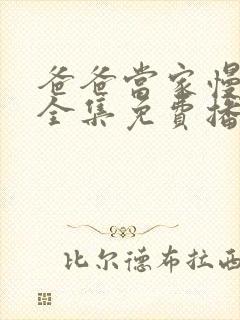 爸爸當家慢
全集免費播
比尔德布拉西